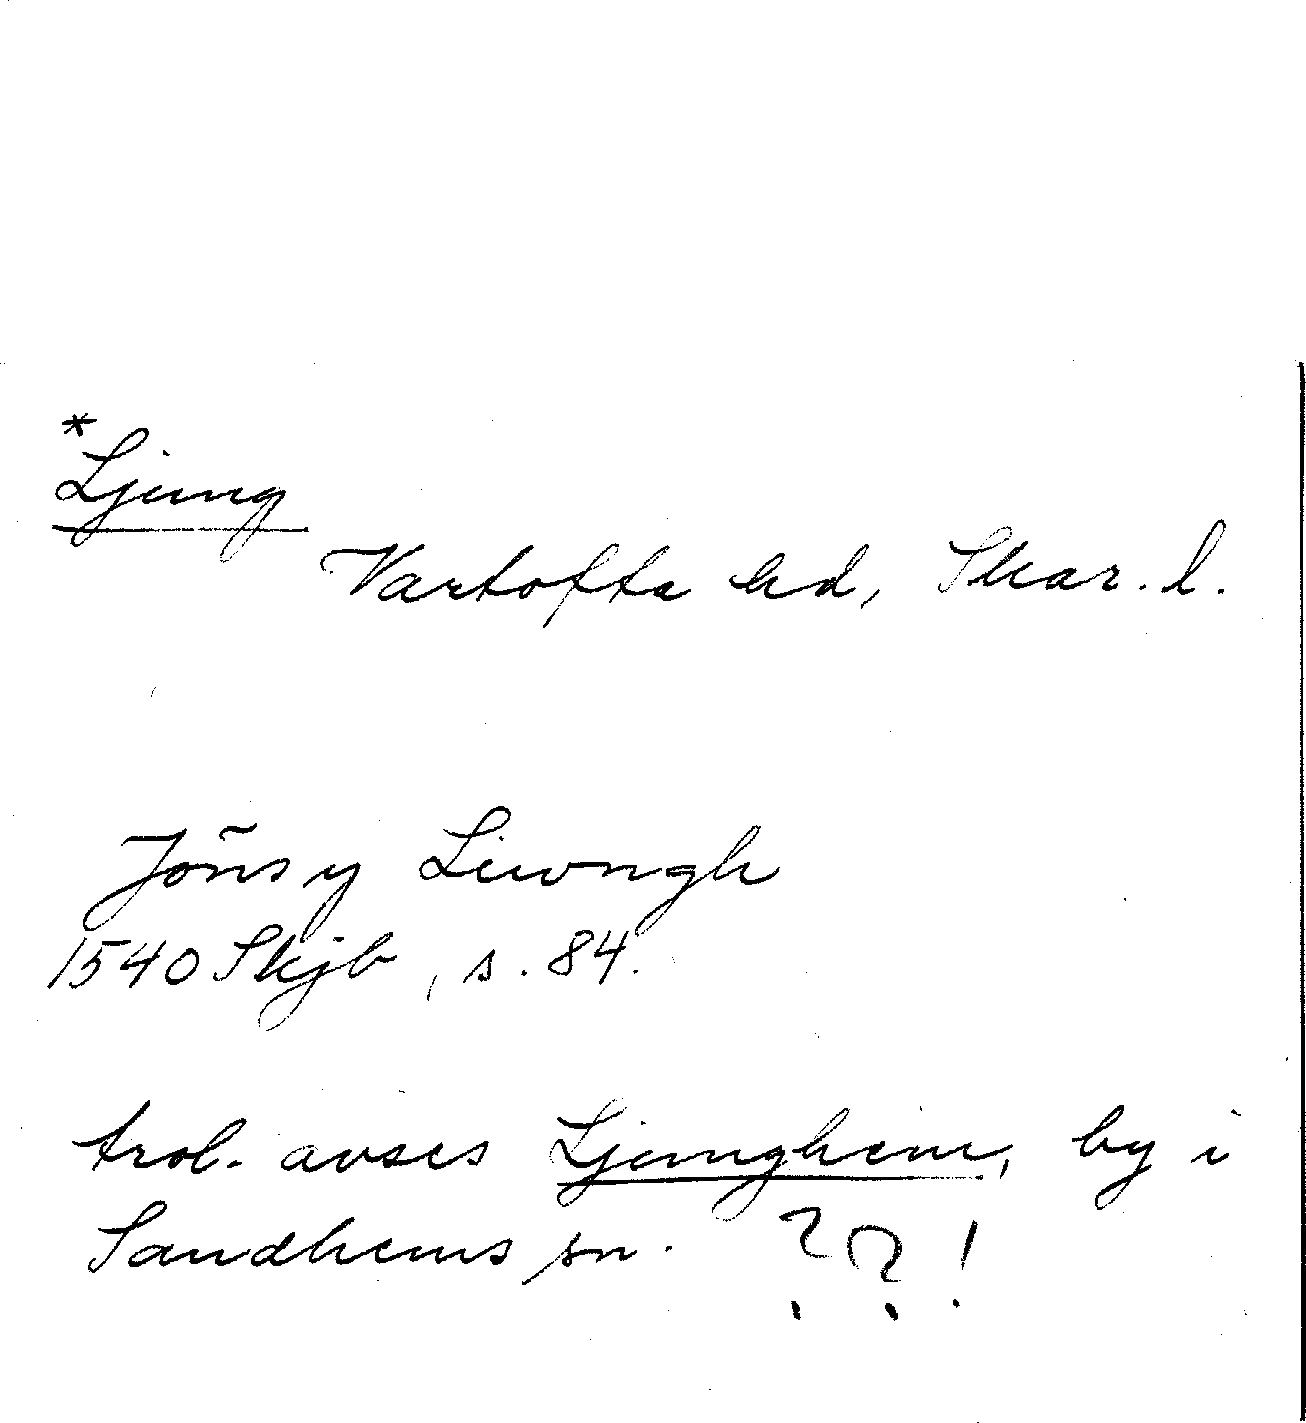 *Ljung
Vartofta hd, Skar. l.
Jōns y Liwngh
1540 Skjb, s. 84.
trol. avses Ljunghem, by i
Sandhems sn. ??!